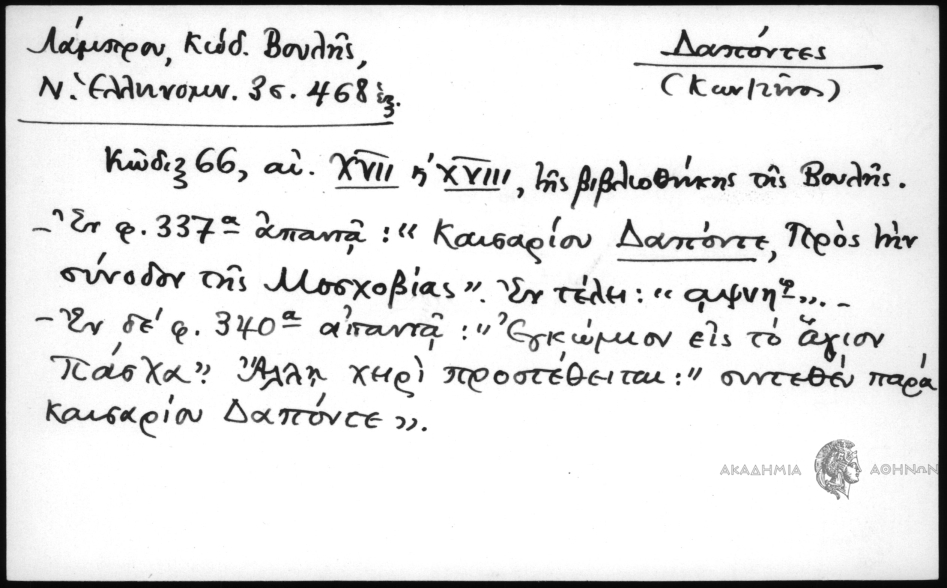 Λάμπρου, Κώδ. Βουλῆς,
Ν. Ἑλληνομν. 3ς. 468 ἑξ.
Δαπόντες
(Κων/τῖνος)
Κῶδιξ 66, αἰ. XVII ἢ XVIII, τῆς βιβλιοθήκης τῆς Βουλῆς.
– Ἐν φ. 337α ἀπαντᾷ : “ Καισαρίου Δαπόντε, Πρὸς τὴν
σύνοδον τῆς Μοσχοβίας”. Ἐν τέλει : “ αψνηῳ”. –
– Ἐν δέ φ. 340α ἀπαντᾷ : “ Ἐγκώμιον εἰς τὸ ἅγιον
Πάσχα”. Ἄλλῃ χειρὶ προστέθειται : “ συντεθὲν παρὰ
Καισαρίου Δαπόντε ”.
ΑΚΑΔΗΜΙΑ ΑΘΗΝΩΝ